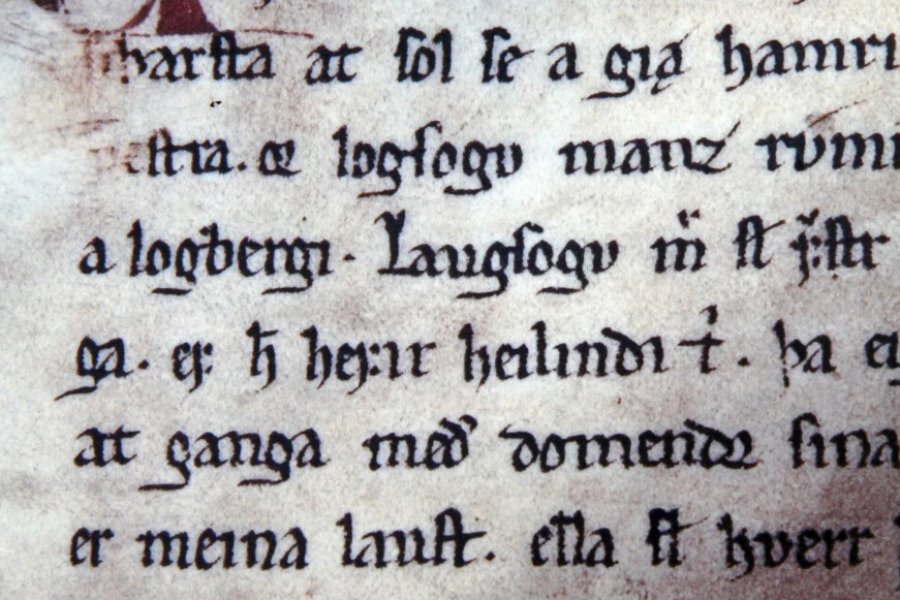 þarſta at ſol ſe a gıa hamrı
eſtra. oꝛ logſogv manz rvmı
a logbergı. Laugſogv m̄ ſꝉ ꝼ̛ſtr
ga. eꝼ h̄ heꝼır heılındı t̛. þa eı
at ganga með domendꝛ ſına
er meına lauſt. ella ſꝉ hverr